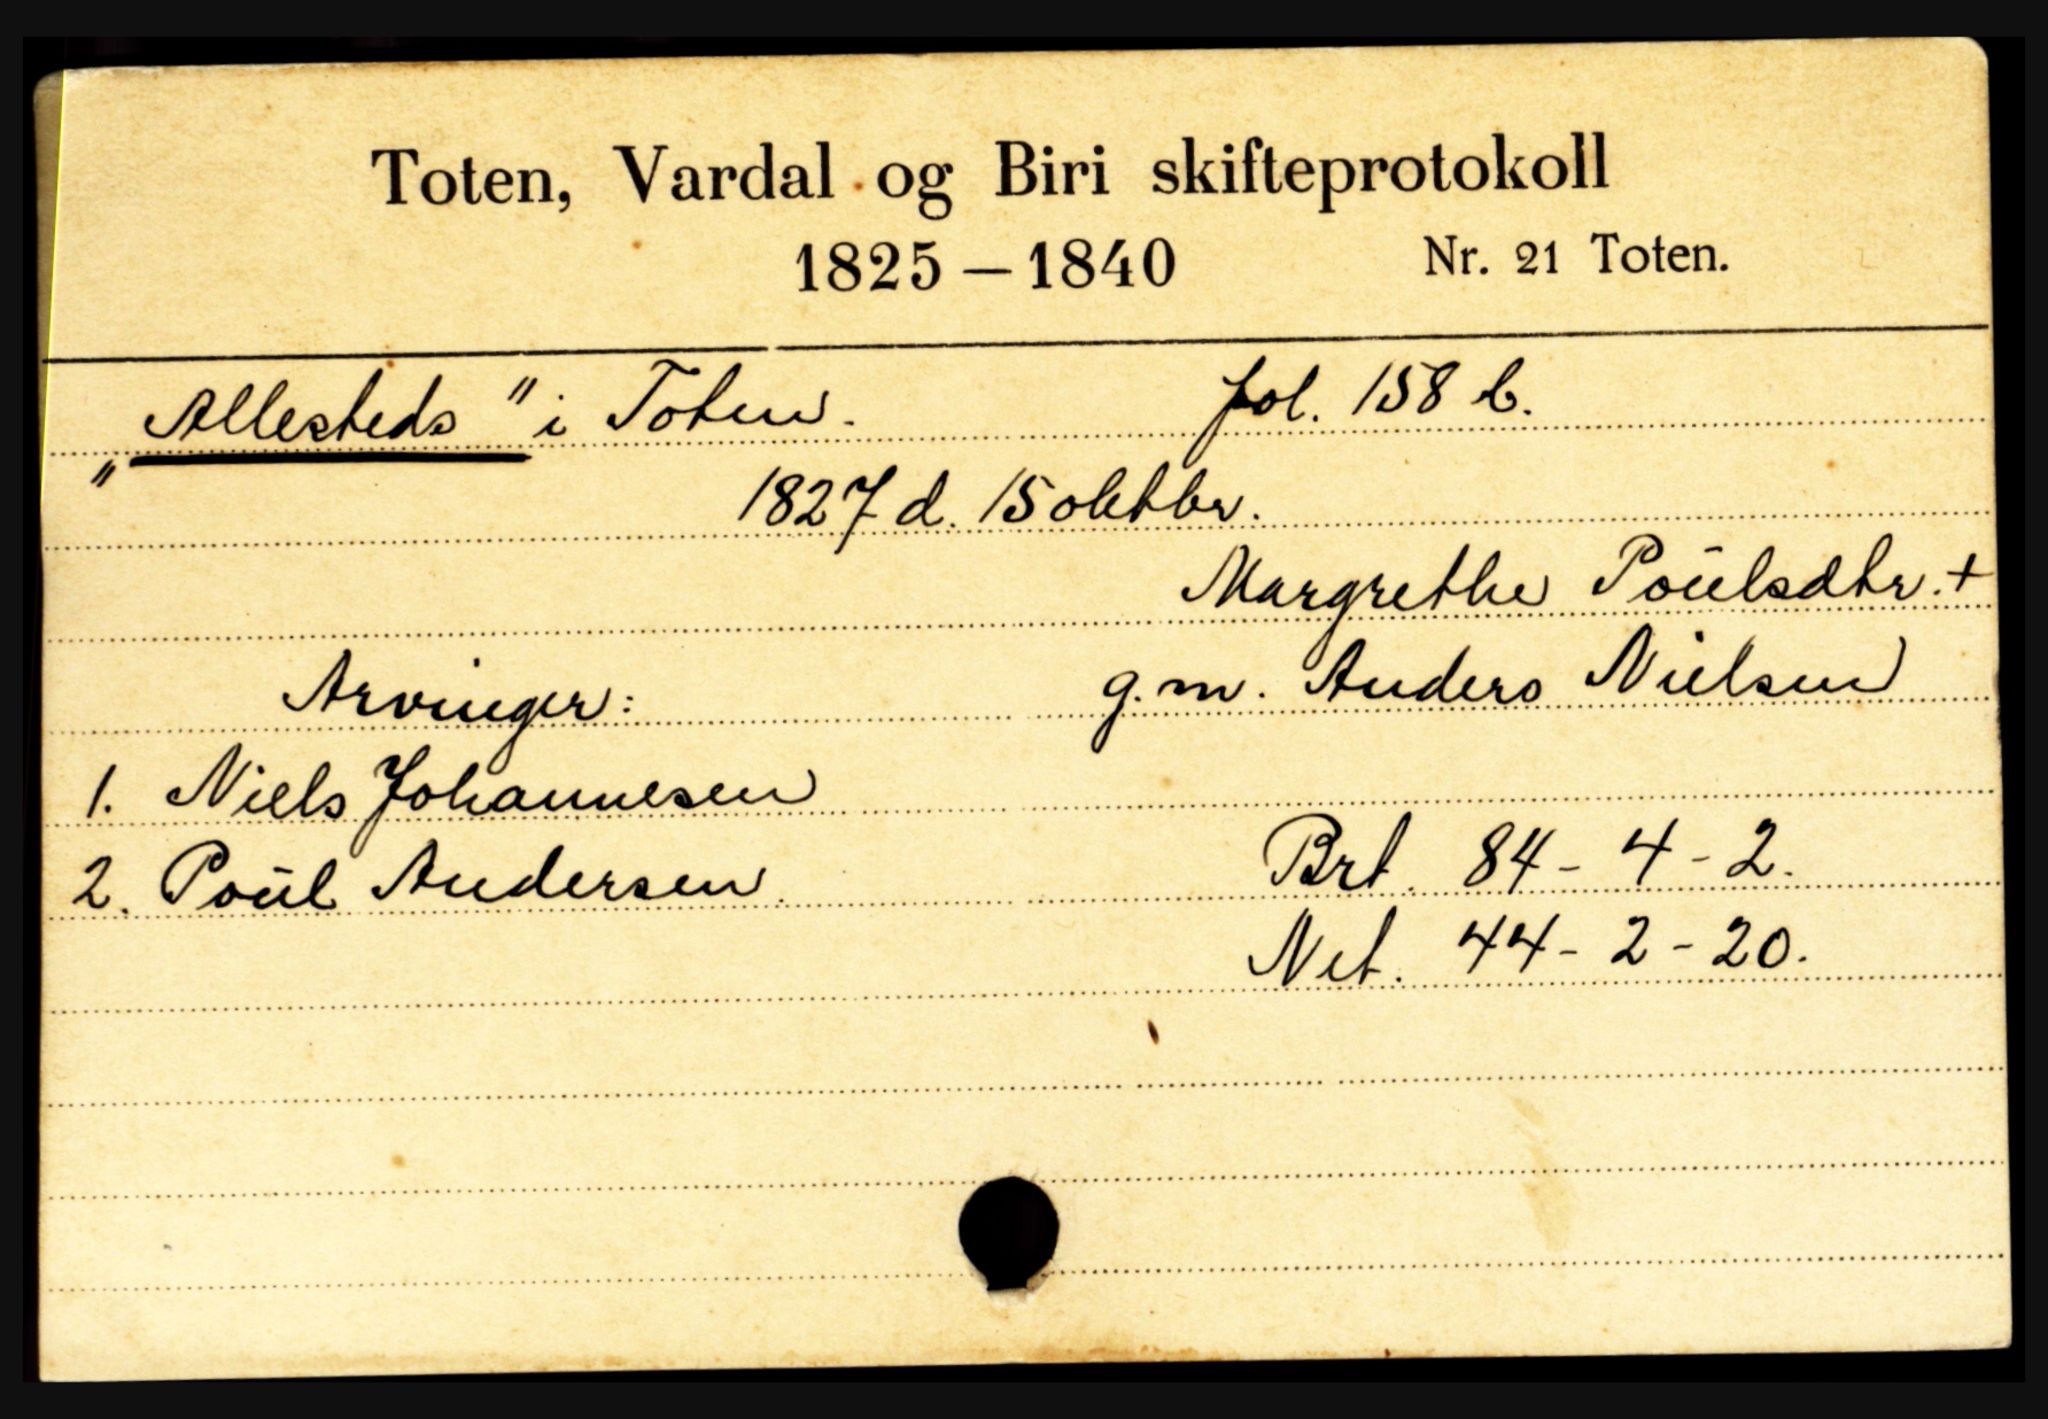 Toten, Vardal og Biri skifteprotokoll
1825 — 1840 Nr. 21 Toten.
"Allesteds" i Toten. fol. 158 b.
1827 d. 15 oktbr.
Margrethe Poŭlsdtr. +
Arvinger: g.m. Anders Nielsen
1. Niels Johannesen
2. Poŭl Andersen. Brt. 84 - 4 - 2.
Net. 44 - 2 - 20.